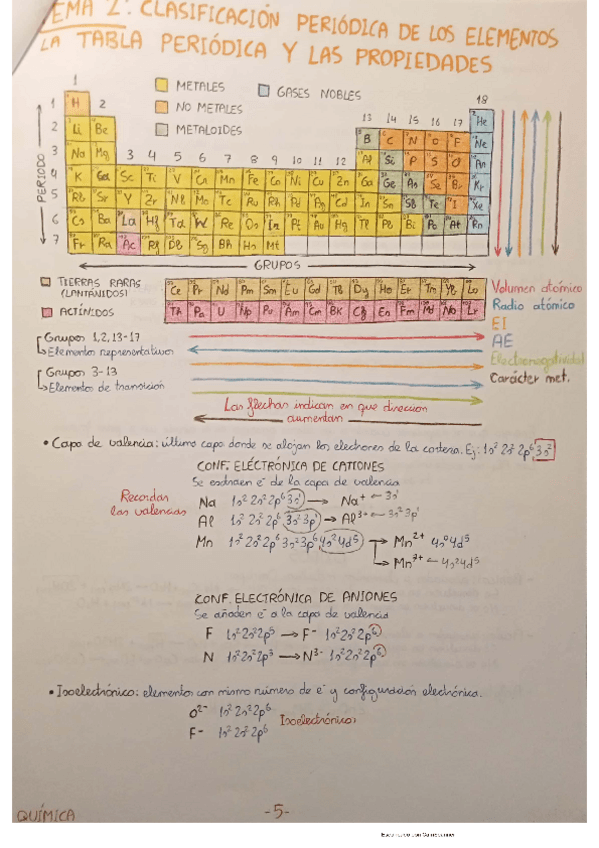 TEMA 2: CLASIFICACIÓN PERIÓDICA DE LOS ELEMENTOS
LA TABLA PERIÓDICA Y LAS PROPIEDADES
METALES
GASES NOBLES
NO METALES
METALOIDES
1 18
1 H 2 13 14 15 16 17 He
2 Li Be B C N O F Ne
3 Na Mg 3 4 5 6 7 8 9 10 11 12 Al Si P S
4 K Sc Ti V Cr Mn Fe Co Ni Cu Zn Ga Ge As Se Br Kr
5 Rb Sr Y Zr Nb Mo Tc Ru Rh Pd Ag Cd In Sn Sb Te I Xe
6 Cs Ba La Hf Ta W Re Os Au Hg Tl Pb Bi Po At Rn
7 Fr Ra Ac Rf Db Sg Bh Hs Mt
PERIODO
GRUPOS
TIERRAS RARAS
(LANTÁNIDOS)
Ce Pr Nd Pm Sm Eu Gd Tb Dy Ho Er Tm Yb Lu
ACTÍNIDOS
Th Pa U Np Pu Am Cm BK Cf Es Fm Md No Lr
Volumen atómico
Radio atómico
EI
AE
Electronegatividad
Carácter met.
Grupos 1, 2, 13-17
Elementos representativos
Grupos 3-13
Elementos de transición
Las flechas indican en que direccion
aumentan
• Capa de valencia: última capa donde se alojan los electrones de la corteza. Ej: 1s² 2s² 2p⁶ 3s²
CONF. ELÉCTRÓNICA DE CATIONES
Se extraen e⁻ de la capa de valencia
Recordar
las valencias
Na 1s² 2s² 2p⁶ 3s¹ → Na⁺ ← 3s¹
Al 1s² 2s² 2p⁶ 3s² 3p¹ → Al³⁺ ← 3s² 3p¹
Mn 1s² 2s² 2p⁶ 3s² 3p⁶ 4s² 4d⁵ → Mn²⁺ 4s⁰ 4d⁵
→ Mn⁷⁺ ← 4s² 4d⁵
CONF. ELECTRÓNICA DE ANIONES
Se añaden e⁻ a la capa de valencia
F 1s² 2s² 2p⁵ → F⁻ 1s² 2s² 2p⁶
N 1s² 2s² 2p³ → N³⁻ 1s² 2s² 2p⁶
• Isoelectrónico: elementos con mismo número de e⁻ y configuración electrónica.
O²⁻ 1s² 2s² 2p⁶
Isoelectrónicos
F⁻ 1s² 2s² 2p⁶
QUÍMICA
-5-
Escaneado con CamScanner